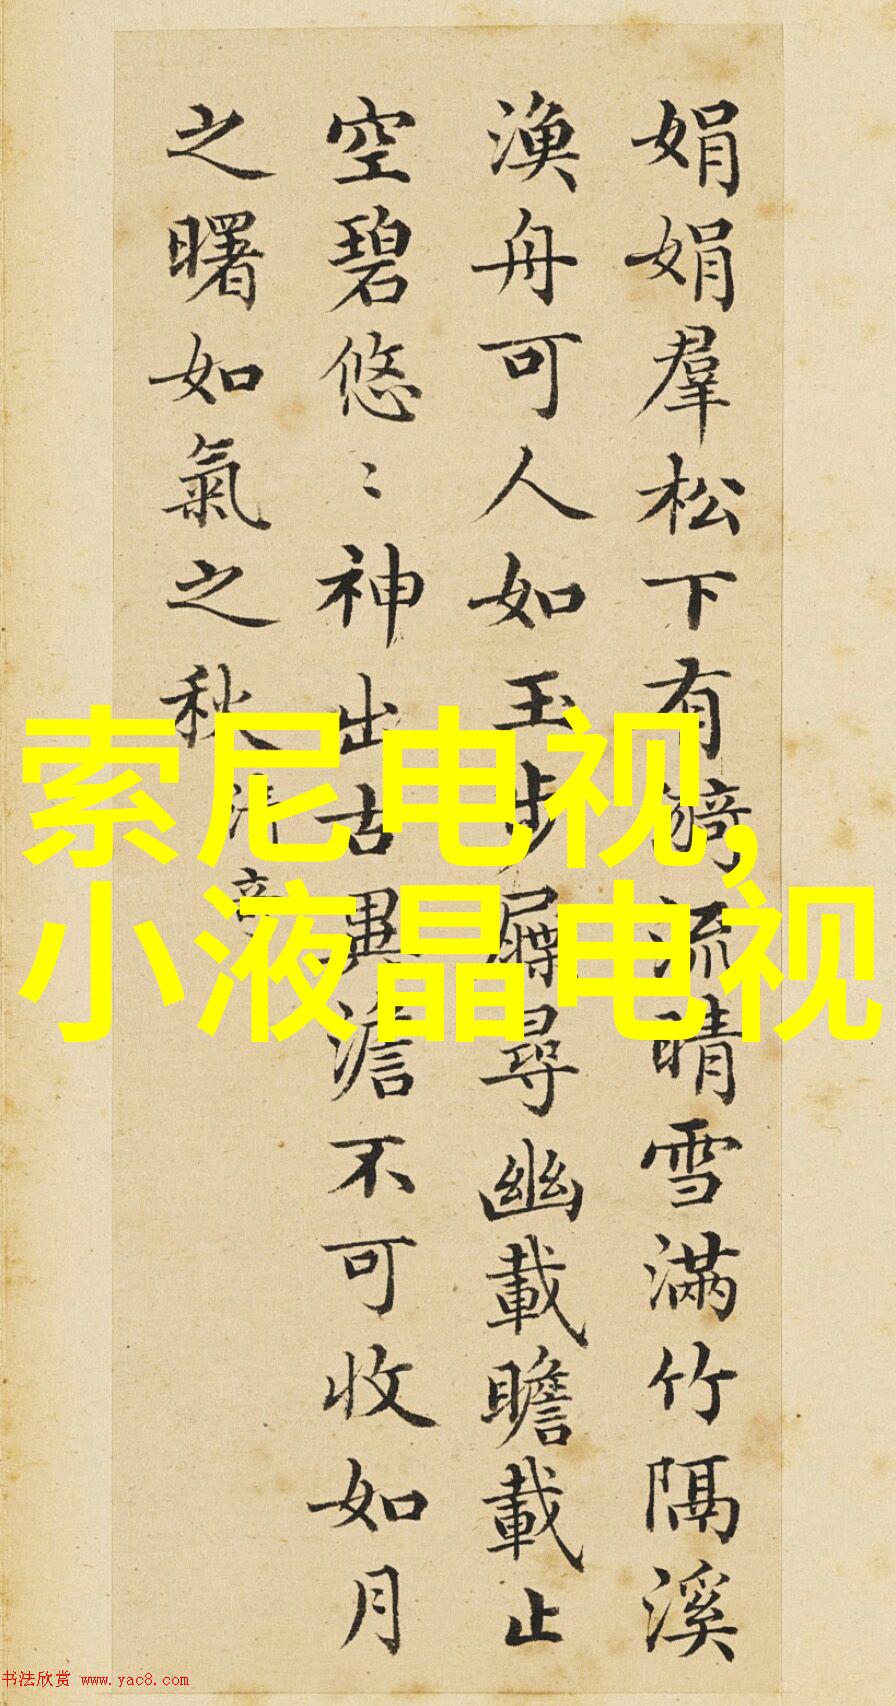 娟娟羣松下有漪流晴雪滿竹隔溪
漁舟可人如玉步屧尋幽載瞻載止
空碧悠〻神出古異澹不可收如月
之曙如氣之秋
清奇
索尼电视,
小液晶电视
书法欣赏 www.yac8.com